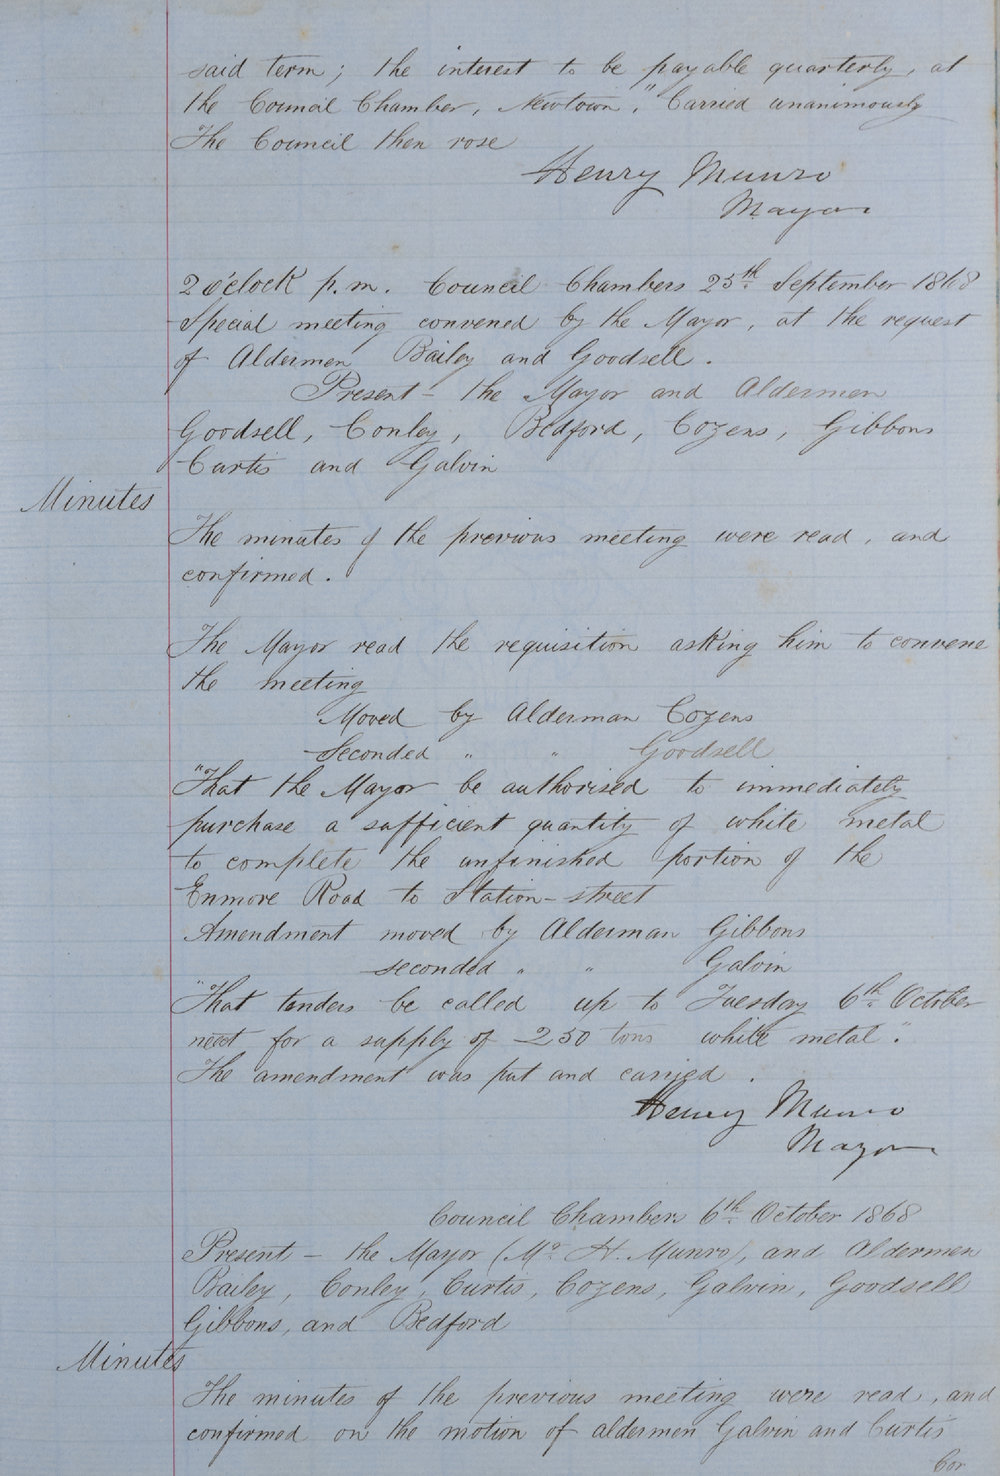 said term; the interest to be payable quarterly, at
the Council Chamber, Newtown," Carried unanimously
The Council then rose
Henry Munro
Mayor
2 o'clock p.m. Council Chambers 25th September 1868
Special meeting convened by the Mayor, at the request
of Aldermen Bailey and Goodsell.
Present - the Mayor and Aldermen
Goodsell, Conley, Bedford, Cozens, Gibbons
Curtis and Galvin
Minutes
The minutes of the previous meeting were read, and
confirmed.
The Mayor read the requisition asking him to convene
the meeting
Moved by Alderman Cozens
Seconded " " Goodsell
"That the Mayor be authorised to immediately
purchase a sufficient quantity of white metal
to complete the unfinished portion of the
Enmore Road to Station-street
Amendment moved by Alderman Gibbons
seconded " " Galvin
"That tenders be called up to Tuesday 6th October
next for a supply of 250 tons white metal."
The amendment was put and carried.
Henry Munro
Mayor
Council Chambers 6th October 1868
Present - the Mayor (Mr H. Munro), and Aldermen
Bailey, Conley, Curtis, Cozens, Galvin, Goodsell
Gibbons, and Bedford
Minutes
The minutes of the previous meeting were read, and
confirmed on the motion of aldermen Galvin and Curtis
Cor